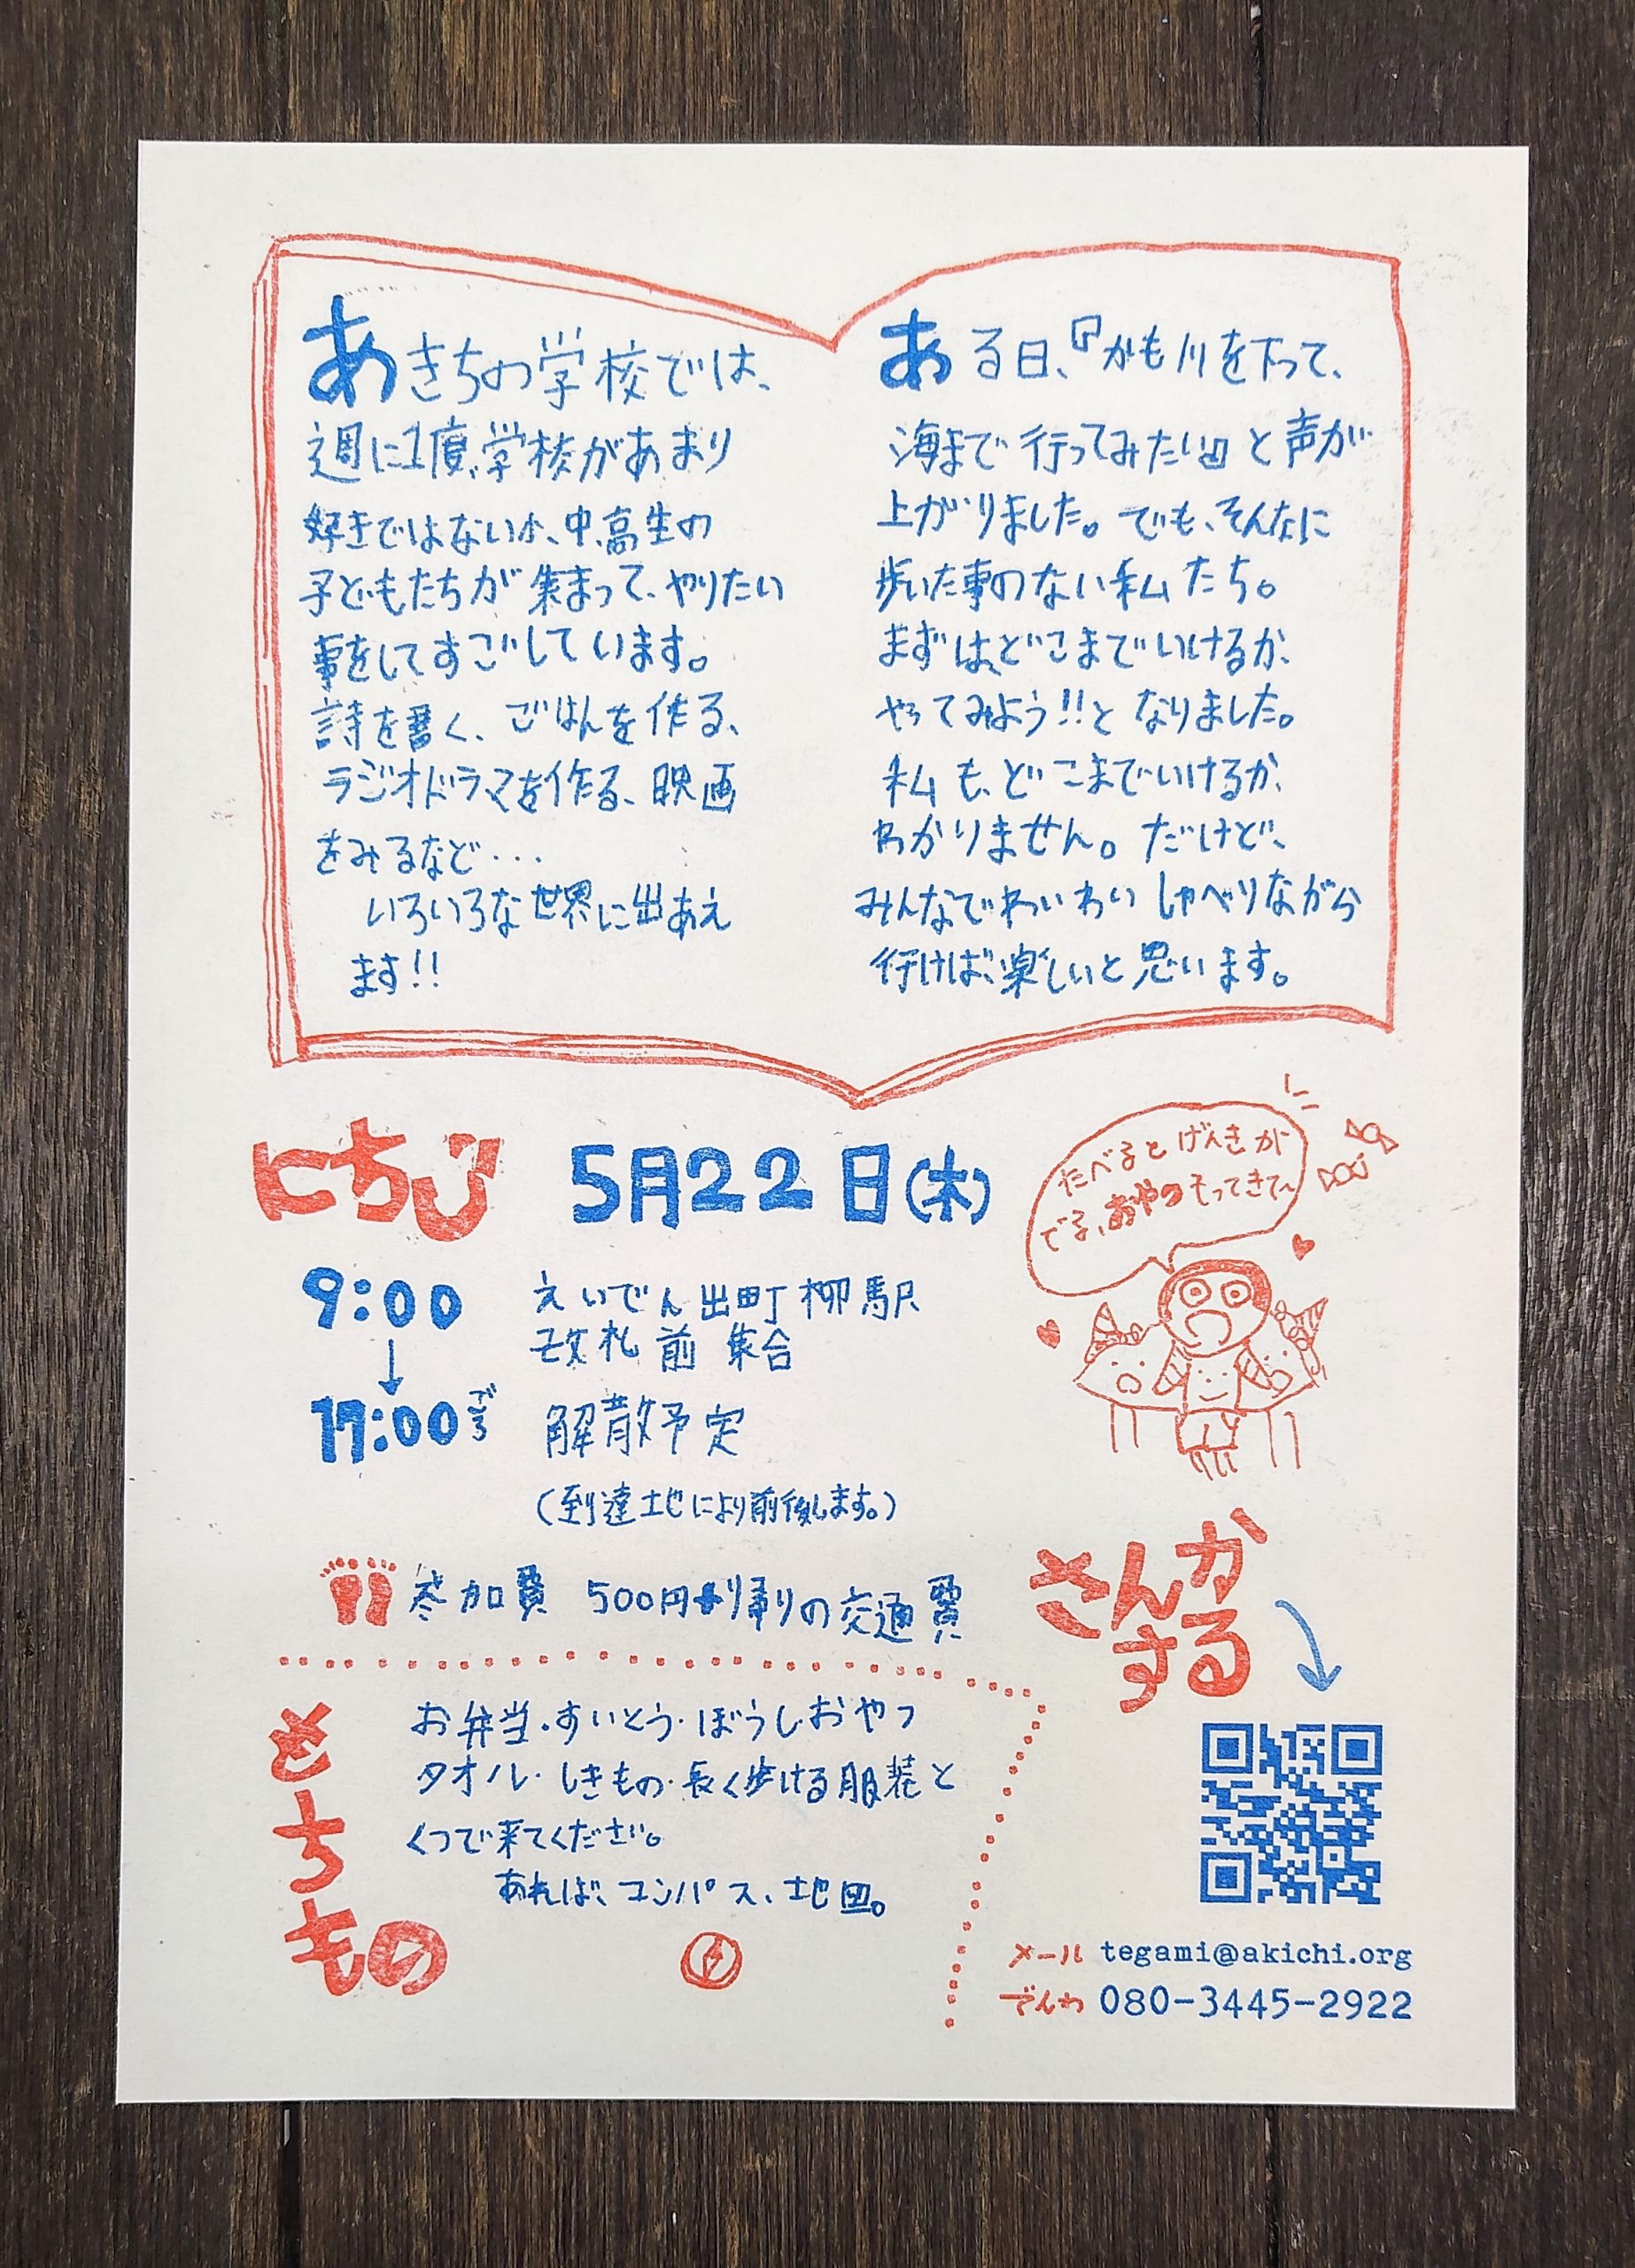 あきちの学校では、
週に1度、学校があまり
好きではない小、中、高生の
子どもたちが集まって、やりたい
事をしてすごしています。
詩を書く、ごはんを作る、
ラジオドラマを作る、映画
をみるなど...
いろいろな世界に出あえ
ます!!
ある日、『かも川を下って、
海まで行ってみたい』と声が
上がりました。でも、そんなに
歩いた事のない私たち。
まずは、どこまでいけるか、
やってみよう!!となりました。
私も、どこまでいけるか、
わかりません。だけど、
みんなでわいわいしゃべりながら
行けば、楽しいと思います。
にちじ 5月22日(木)
9:00 えいでん出町柳駅
改札前集合
↓
17:00ごろ 解散予定
(到達地により前後します。)
たべるとげんきが
でる、おやつもってきて〜
参加費 500円+帰りの交通費
さんか
する
もちもの
お弁当・すいとう・ぼうし・おやつ
タオル・しきもの・長く歩ける服装と
くつで来てください。
あれば、コンパス、地図。
メール tegami@akichi.org
でんわ 080-3445-2922